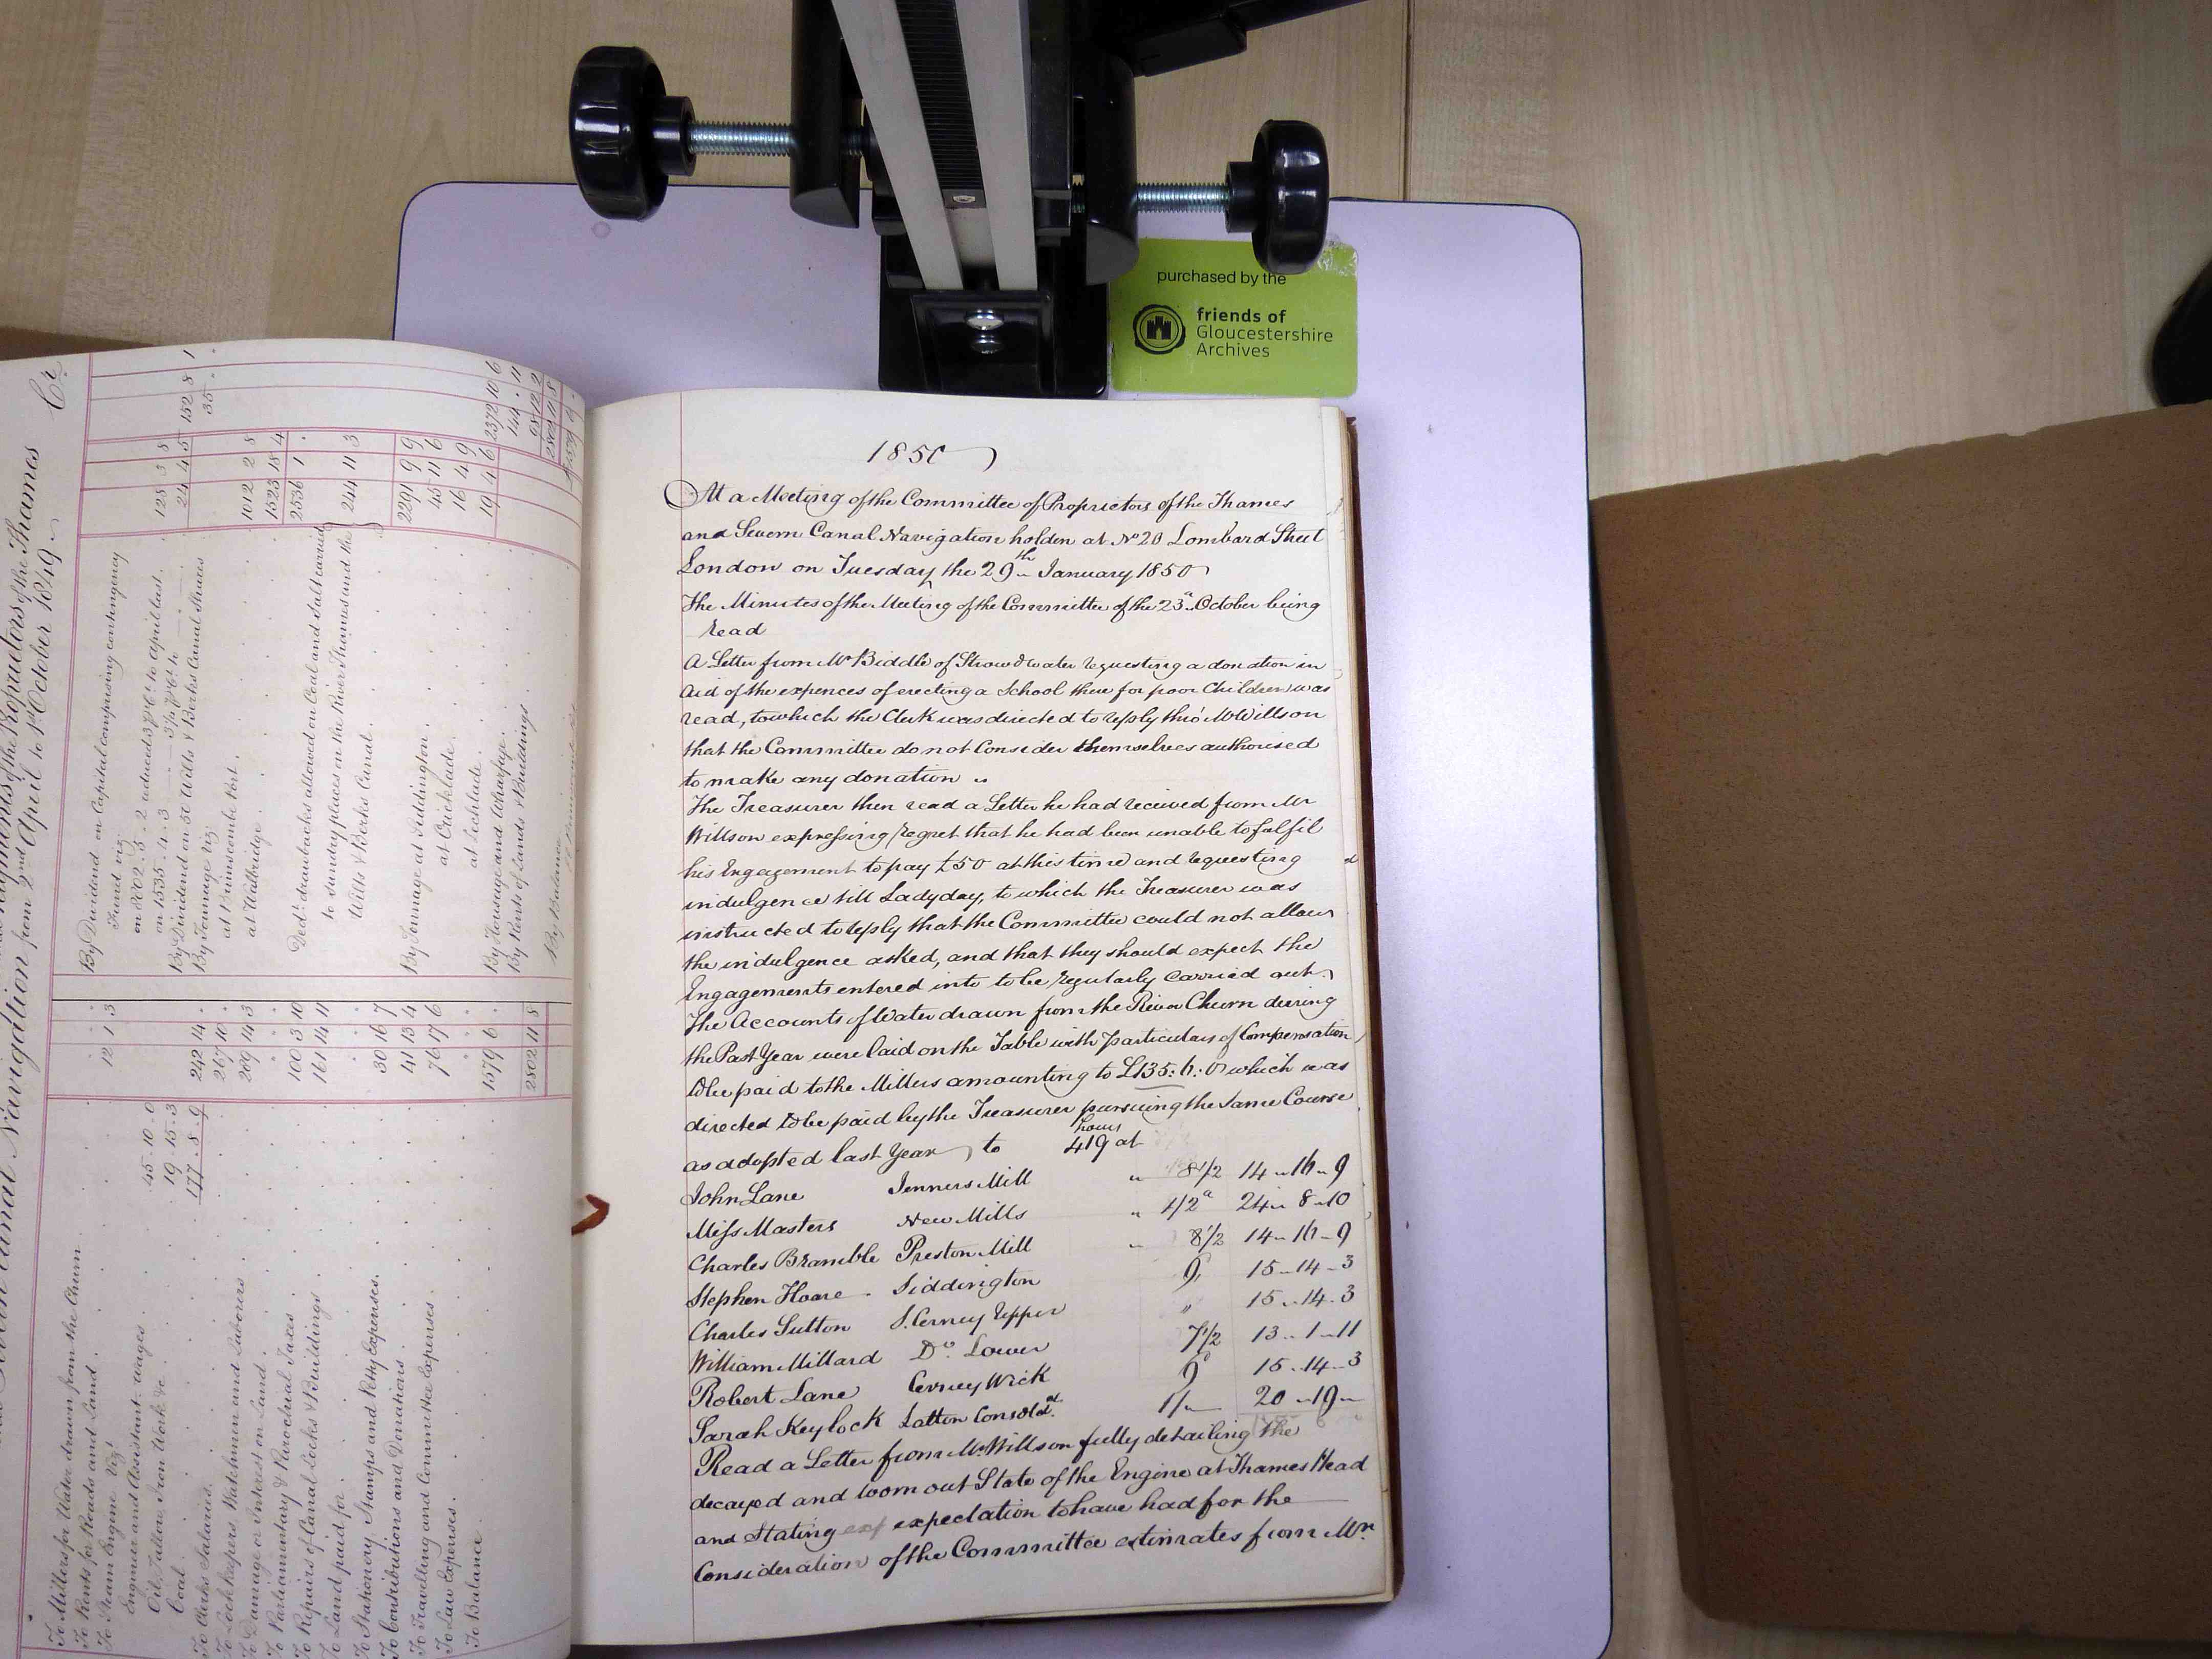 purchased by the
friends of
Gloucestershire
Archives
Navigation from 2nd April to 1st October 1849
Cr
To Millers for Water drawn from the Churn 12 1 3
To Rents for Roads and Land
To Steam Engine Vizt
Engineer and Assistant wages 45 . 10 . 0
Oil, Tallow, Iron Work &c 19 . 15 . 3
Coal 177 . 8 . 9
242 14
To Clerks Salaries 267 10
To Lockkeepers, Watchmen and Laborers 269 14 3
To Damage or Interest on Land
To Parliamentary & Parochial Taxes 160 3 10
To Repairs of Canal Locks & Buildings 161 14 11
To Land paid for
To Stationery, Stamps and Petty Expenses 30 16 7
To Contributions and Donations 41 13 4
To Travelling and Committee Expenses 76 17 6
To Law Expenses
To Balance 1579 6
2802 11 8
By Dividend on Capital comprising contingency
Fund viz
128 3 8
24 4 5 152 8 1
By Dividend on 50 Wilts & Berks Canal Shares 35
By Tonnage viz
at Brimscombe Port 1012 2 8
at Walbridge 1523 18 4
2536 1
Dedt drawbacks allowed on Coal and Salt carried
to sundry places on the River Thames and the
Wilts & Berks Canal 244 11 3
2291 9 9
By Tonnage at Siddington 45 11 6
at Cricklade 16 4 9
at Lechlade 19 4 6
2372 10 6
By Housage and Wharfage
By Rents of Lands & Buildings
By Balance
1850
At a Meeting of the Committee of Proprietors of the Thames
and Severn Canal Navigation holden at No 20 Lombard Street
London on Tuesday the 29th January 1850
The Minutes of the Meeting of the Committee of the 23d October being
read
A Letter from Mr Biddle of Stroudwater requesting a donation in
aid of the expences of erecting a School there for poor Children was
read, to which the Clerk was directed to reply thro' Mr Willson
that the Committee do not Consider themselves authorised
to make any donation
The Treasurer then read a Letter he had received from Mr
Willson expressing regret that he had been unable to fulfil
his Engagement to pay £50 at this time and requesting
indulgence till Ladyday, to which the Treasurer was
instructed to reply that the Committee could not allow
the indulgence asked, and that they should expect the
Engagements entered into to be regularly carried out.
The Accounts of Water drawn from the River Churn during
the Past Year were laid on the Table with Particulars of Compensation
to be paid to the Millers amounting to £135: 6: 0 which was
directed to be paid by the Treasurer pursuing the same Course
as adopted last Year, to 419 hours at
John Lane Jenners Mill " 8 1/2 14 " 16 " 9
Miss Masters New Mills " 1/2d 24 " 8 " 10
Charles Bramble Preston Mill " 8 1/2 14 " 16 " 9
Stephen Hoare Siddington 9 15 " 14 " 3
Charles Sutton S. Cerney Upper " 15 " 14 " 3
William Millard Do. Lower 7 1/2 13 " 1 " 11
Robert Lane Cerney Wick 9d 15 " 14 " 3
Sarah Keylock Latton Consold. 1/" 20 " 19 "
Read a Letter from Mr Willson fully detailing the
decayed and worn out State of the Engine at Thames Head
and Stating expectation to have had for the
Consideration of the Committee estimates from Mr